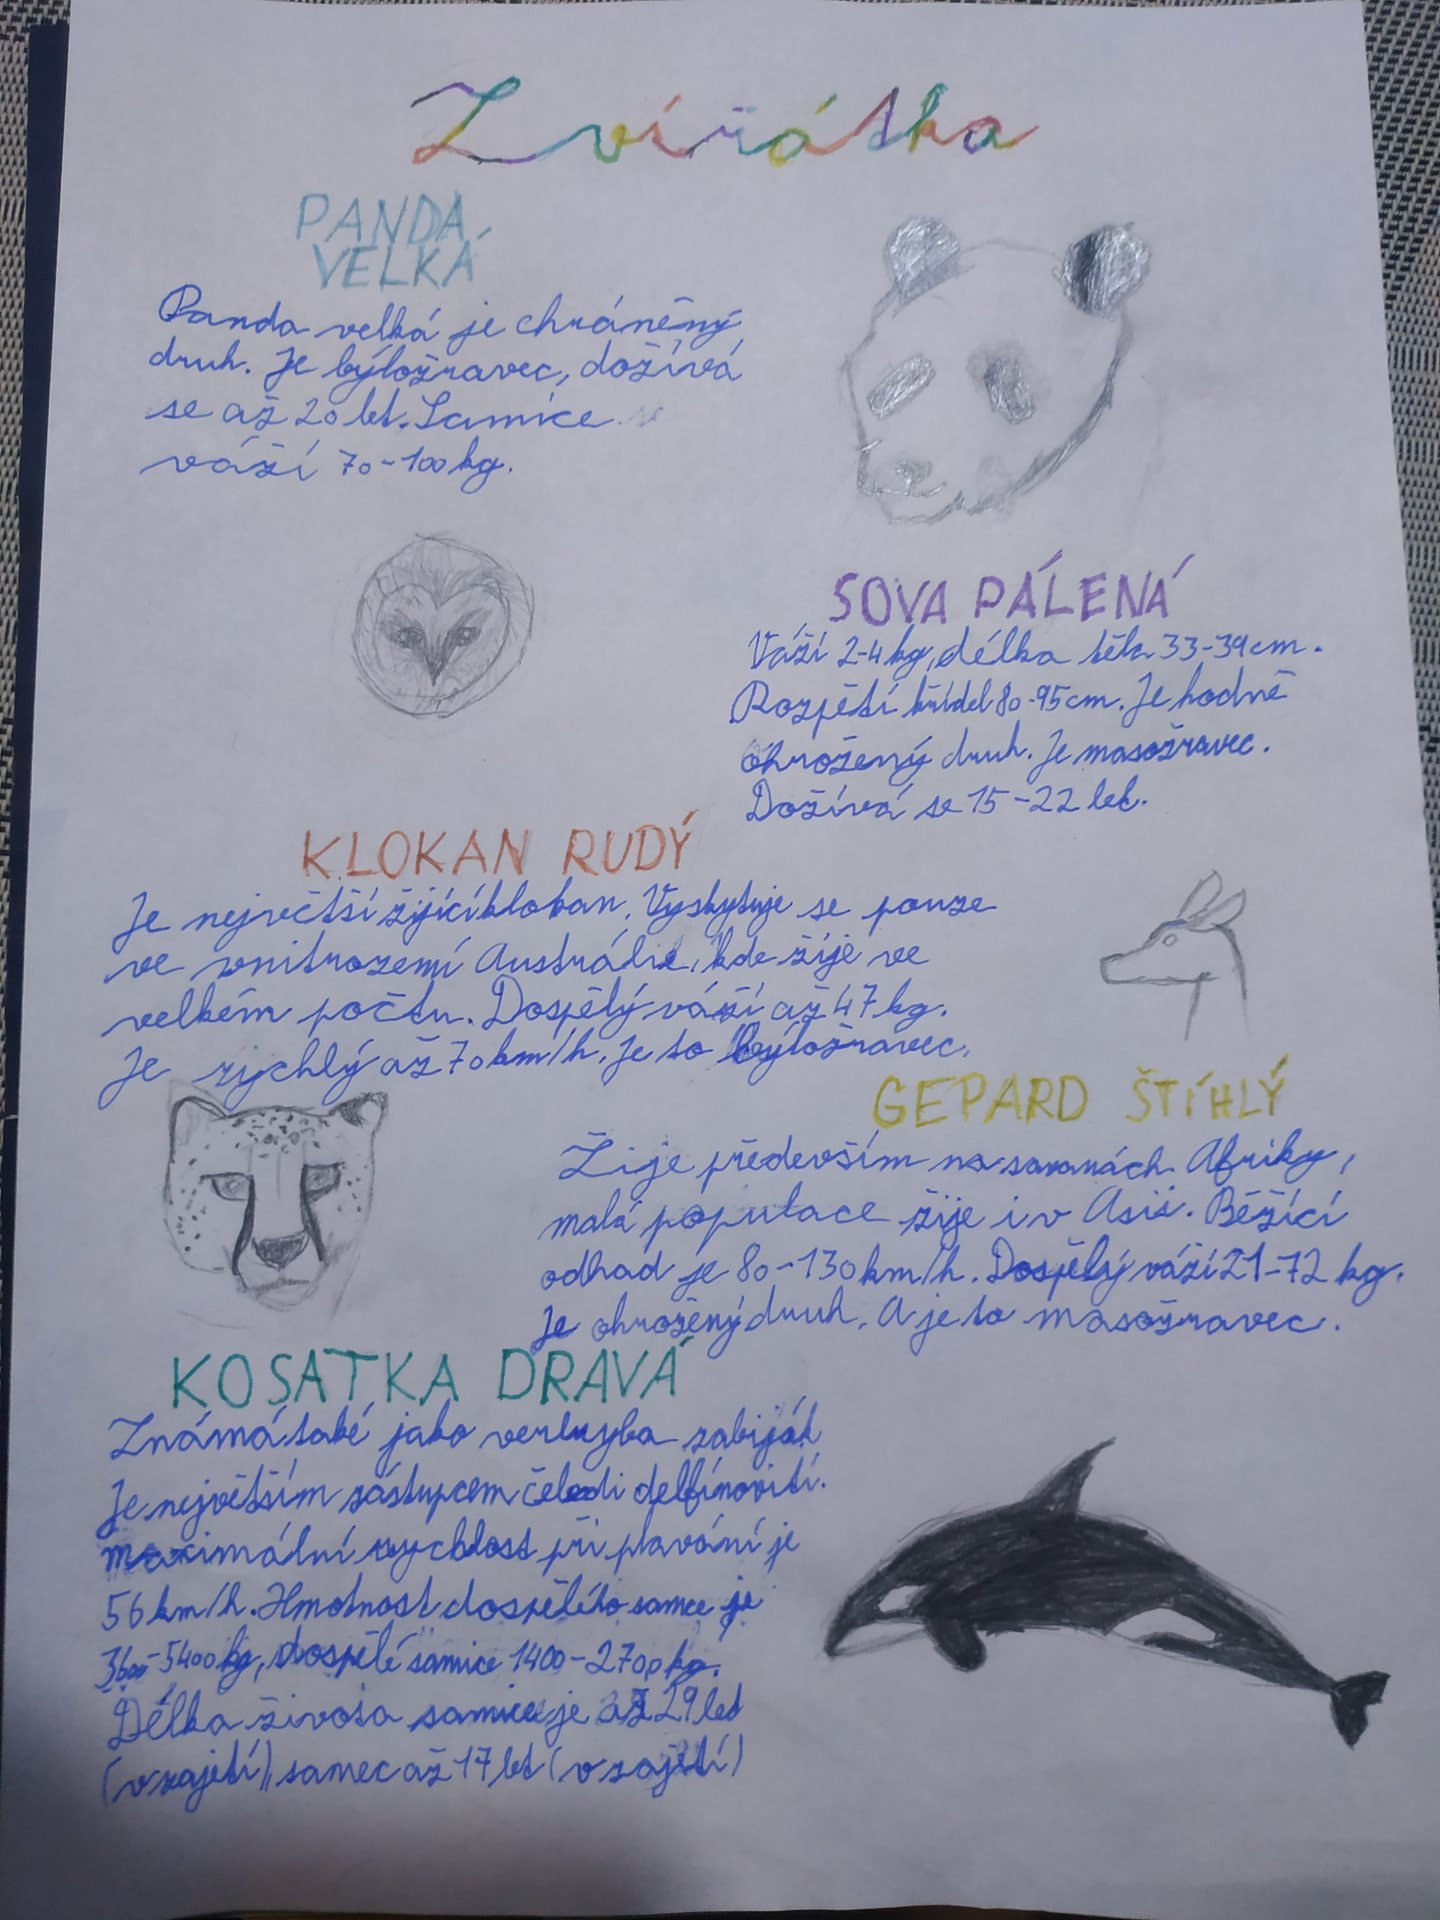 Zvířátka
PANDA
VELKÁ
Panda velká je chráněný
druh. Je býložravec, dožívá
se až 20 let. Samice
váží 70-100 kg.
SOVA PÁLENÁ
Váží 2-4 kg, délka těla 33-39 cm.
Rozpětí křídel 80-95 cm. Je hodně
ohrožený druh. Je masožravec.
Dožívá se 15-22 let.
KLOKAN RUDÝ
Je největší žijící klokan. Vyskytuje se pouze
ve vnitrozemí Austrálie, kde žije ve
velkém počtu. Dospělý váží až 47 kg.
Je rychlý až 70 km/h. Je to býložravec.
GEPARD ŠTÍHLÝ
Žije především na savanách Afriky,
malá populace žije i v Asii. Běžící
odhad je 80-130 km/h. Dospělý váží 21-72 kg.
Je ohrožený druh. A je to masožravec.
KOSATKA DRAVÁ
Známá také jako verlryba zabiják
Je největším zástupcem čeledi delfínovití.
maximální rychlost při plavání je
56 km/h. Hmotnost dospělého samce je
3600-5400 kg, dospělé samice 1400-2700 kg.
Délka života samice je až 29 let
(v zajetí), samec až 17 let (v zajetí)